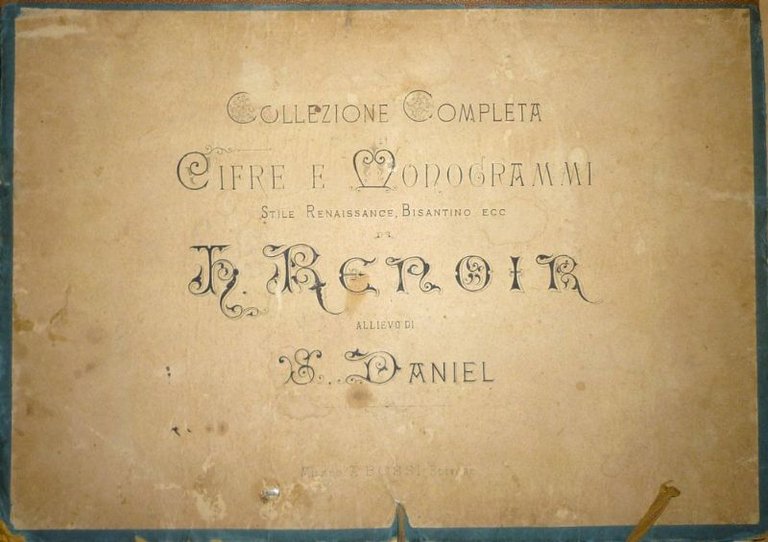 COLLEZIONE COMPLETA
CIFRE E MONOGRAMMI
STILE RENAISSANCE, BISANTINO ECC
DI
H. RENOIR
ALLIEVO DI
S. DANIEL